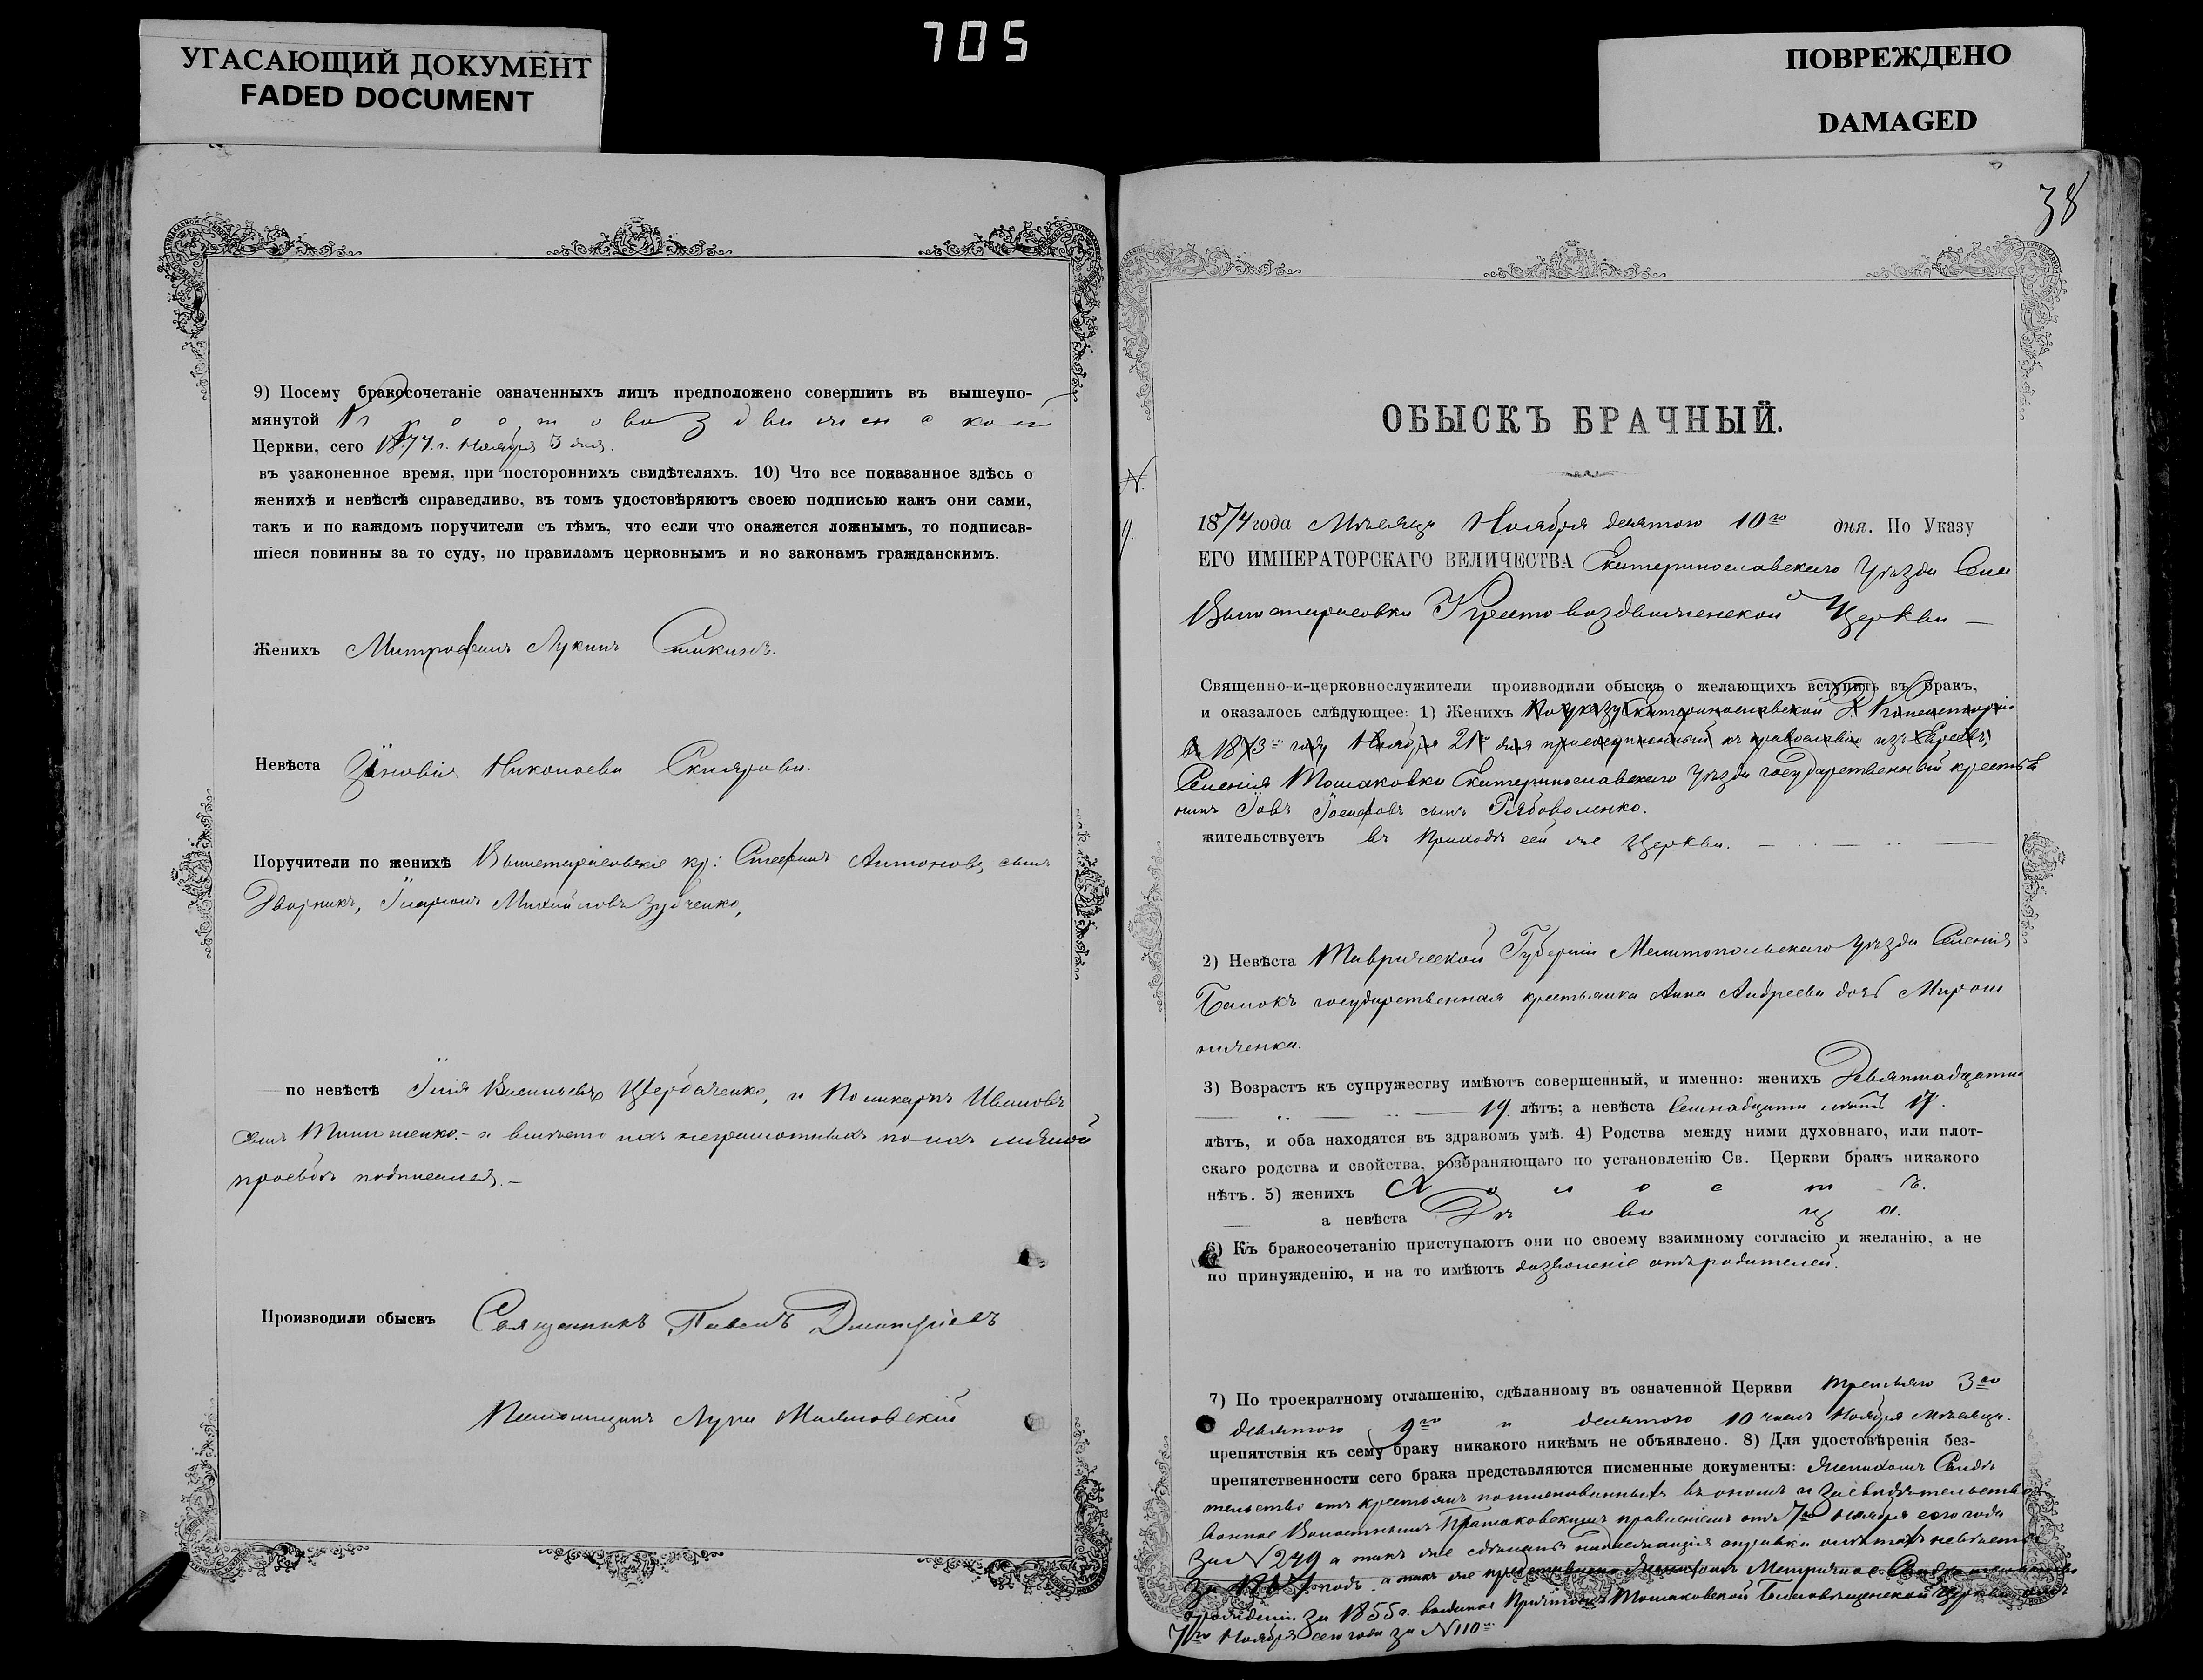 УГАСАЮЩИЙ ДОКУМЕНТ
FADED DOCUMENT
705
ПОВРЕЖДЕНО
DAMAGED
9) Посему бракосочетаніе означенныхъ лицъ предположено совершить въ вышеупо-
мянутой Крестовоздвиженской
Церкви, сего 1874 г. Ноября 3 дня.
въ узаконенное время, при постороннихъ свидѣтеляхъ. 10) Что все показанное здѣсь о
женихѣ и невѣстѣ справедливо, въ томъ удостовѣряютъ своею подписью какъ они сами,
такъ и по каждомъ поручители съ тѣмъ, что если что окажется ложнымъ, то подписав-
шіеся повинны за то суду, по правиламъ церковнымъ и по законамъ гражданскимъ.
Женихъ Митрофанъ Лукинъ
Невѣста Зѣновія Николаева Склярова.
Поручители по женихѣ Вышетарасовскіе кр: Стефанъ Антоновъ сынъ
Дворникъ, Иларіонъ Михайловъ Зубченко,
по невѣстѣ Илія Васильевъ Щербаченко, и Поликарпъ Ивановъ
сынъ Тимошенко. а вмѣсто ихъ неграмотныхъ по ихъ личной
просьбѣ подписался.
Производили обыскъ Священникъ Павелъ Дмитріевъ
Пономарь Лука
38
ОБЫСКЪ БРАЧНЫЙ.
N.
9.
1874 года Мѣсяца Ноября десятого 10го дня. По Указу
ЕГО ИМПЕРАТОРСКАГО ВЕЛИЧЕСТВА Екатеринославскаго Уѣзда Села
Вышетарасовки Крестовоздвиженской Церкви
Священно-и-церковнослужители производили обыскъ о желающихъ вступить въ бракъ,
и оказалось слѣдующее: 1) Женихъ По указу Екатеринославской Д. Консисторіи
въ 1873 году Ноября 21го дня присоединенный къ православію изъ Евреевъ,
Селенія Томаковки Екатеринославскаго Уѣзда государственный крестья
нинъ Іовъ Іосифовъ сынъ Рябоволенко.
жительствуетъ въ приходѣ сей же Церкви.
2) Невѣста Таврической Губерніи Мелитопольскаго Уѣзда Селенія
Балокъ государственная крестьянка Анна Андреева дочь Мирош
ниченка.
3) Возрастъ къ супружеству имѣютъ совершенный, и именно: женихъ Девятнадцати
19 лѣтъ; а невѣста Семнадцати лѣтъ 17.
лѣтъ, и оба находятся въ здравомъ умѣ. 4) Родства между ними духовнаго, или плот-
скаго родства и свойства, возбраняющаго по установленію Св. Церкви бракъ никакого
нѣтъ. 5) женихъ Холостъ.
а невѣста Дѣвица.
6) Къ бракосочетанію приступаютъ они по своему взаимному согласію и желанію, а не
по принужденію, и на то имѣютъ дозволеніе отъ родителей.
7) По троекратному оглашенію, сдѣланному въ означенной Церкви третьяго 3го
девятого 9го и десятого 10 числъ Ноября Мѣсяца.
препятствія къ сему браку никакого никѣмъ не объявлено. 8) Для удостовѣренія без-
препятственности сего брака представляются писменные документы: Женихомъ Свидѣ
тельство отъ крестьянъ поименованныхъ въ ономъ и засвидѣтельство
ванное Волостнымъ Томаковскимъ правленіемъ отъ 7го Ноября сего года
За N 249 а также сдѣланы надлежащія справки о лѣтахъ невѣсты
за 1857 годъ. а также представлено Женихомъ Метричное Свидѣтельство
о рожденіи за 1855 г. выданное Причтомъ Томаковской Благовѣщенской Церкви отъ
7го Ноября сего года за N 110